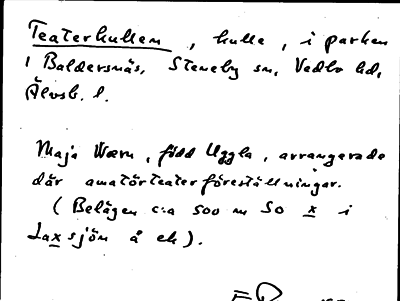 Teaterkullen, kulle, i parken
i Baldersnäs, Steneby sn, Vedbo hd,
Älvsb. l.
Maja Wærn, född Uggla, arrangerade
där amatörteaterföreställningar.
(Belägen c:a 500 m SO x i
Laxsjön å ek).